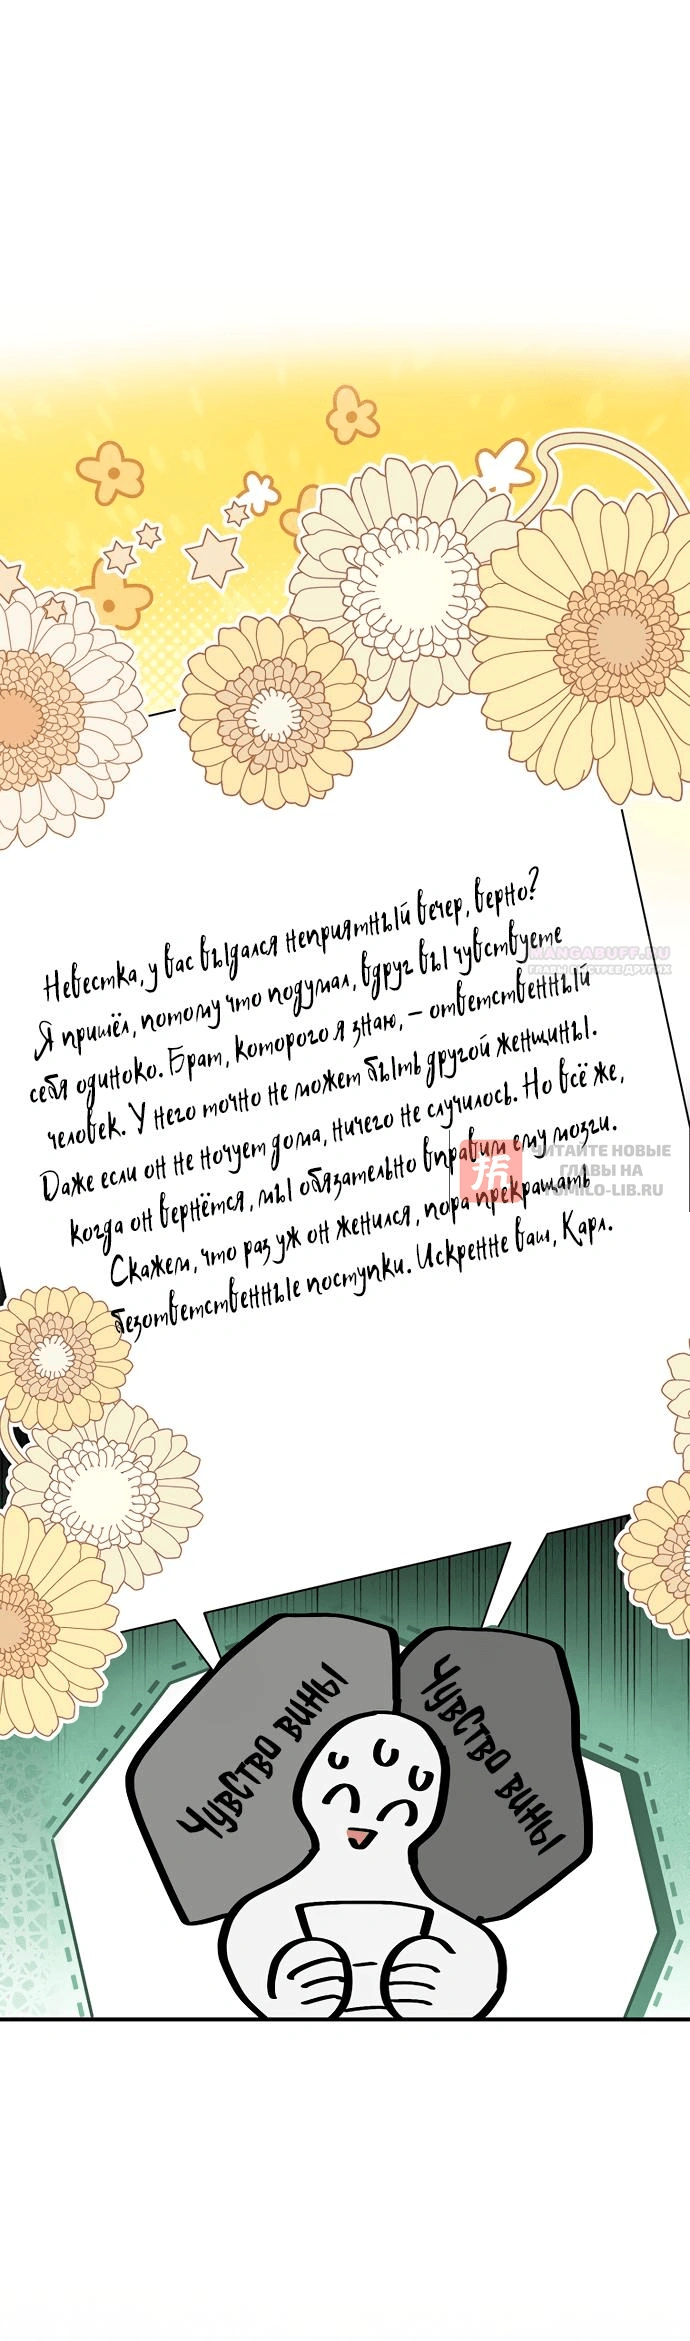 Невестка, у вас выдался неприятный вечер, верно?
Я пришёл, потому что подумал, вдруг вы чувствуете
себя одиноко. Брат, которого я знаю, – ответственный
человек. У него точно не может быть другой женщины.
Даже если он не ночует дома, ничего не случилось. Но всё же,
когда он вернётся, мы обязательно вправим ему мозги.
Скажем, что раз уж он женился, пора прекращать
безответственные поступки. Искренне ваш, Карл.
MANGABUFF.RU
ГЛАВЫ БЫСТРЕЕ ДРУГИХ
ЧИТАЙТЕ НОВЫЕ
ГЛАВЫ НА
TOMILO-LIB.RU
Чувство вины
Чувство вины